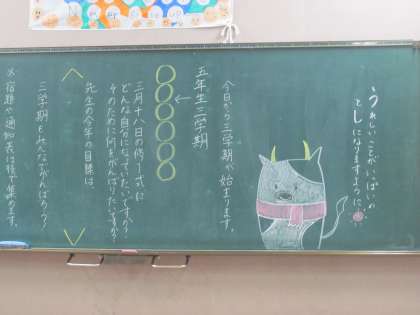 Never Give up
うれしいことがいっぱいの
としになりますように。
今日から三学期が始まります。
五年生三学期
三月十八日の修了式に
どんな自分になっていたいですか?
そのために何をがんばりたいですか?
先生の今年の目標は、
三学期もみんなでがんばろう!
※宿題や通知表は後で集めます。